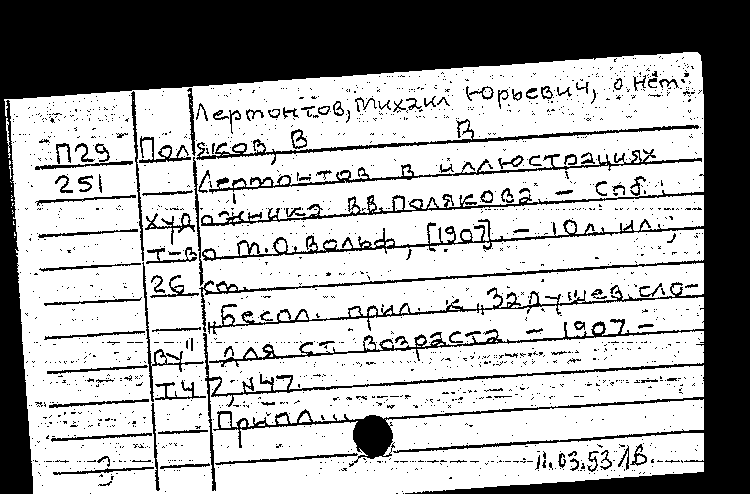 Лермонтов, Михаил Юрьевич, о нем.
П29 Поляков, В В
251 Лермонтов в иллюстрациях
художника В.В. Полякова. – Спб.:
т-во М.О. Вольф, [1907]. – 10 л. ил.;
26 см.
„Беспл. прил. к „Задушев. сло-
ву" для ст. возраста. – 1907. –
Т.42, N47.
Припл...
11.03.53 /В.